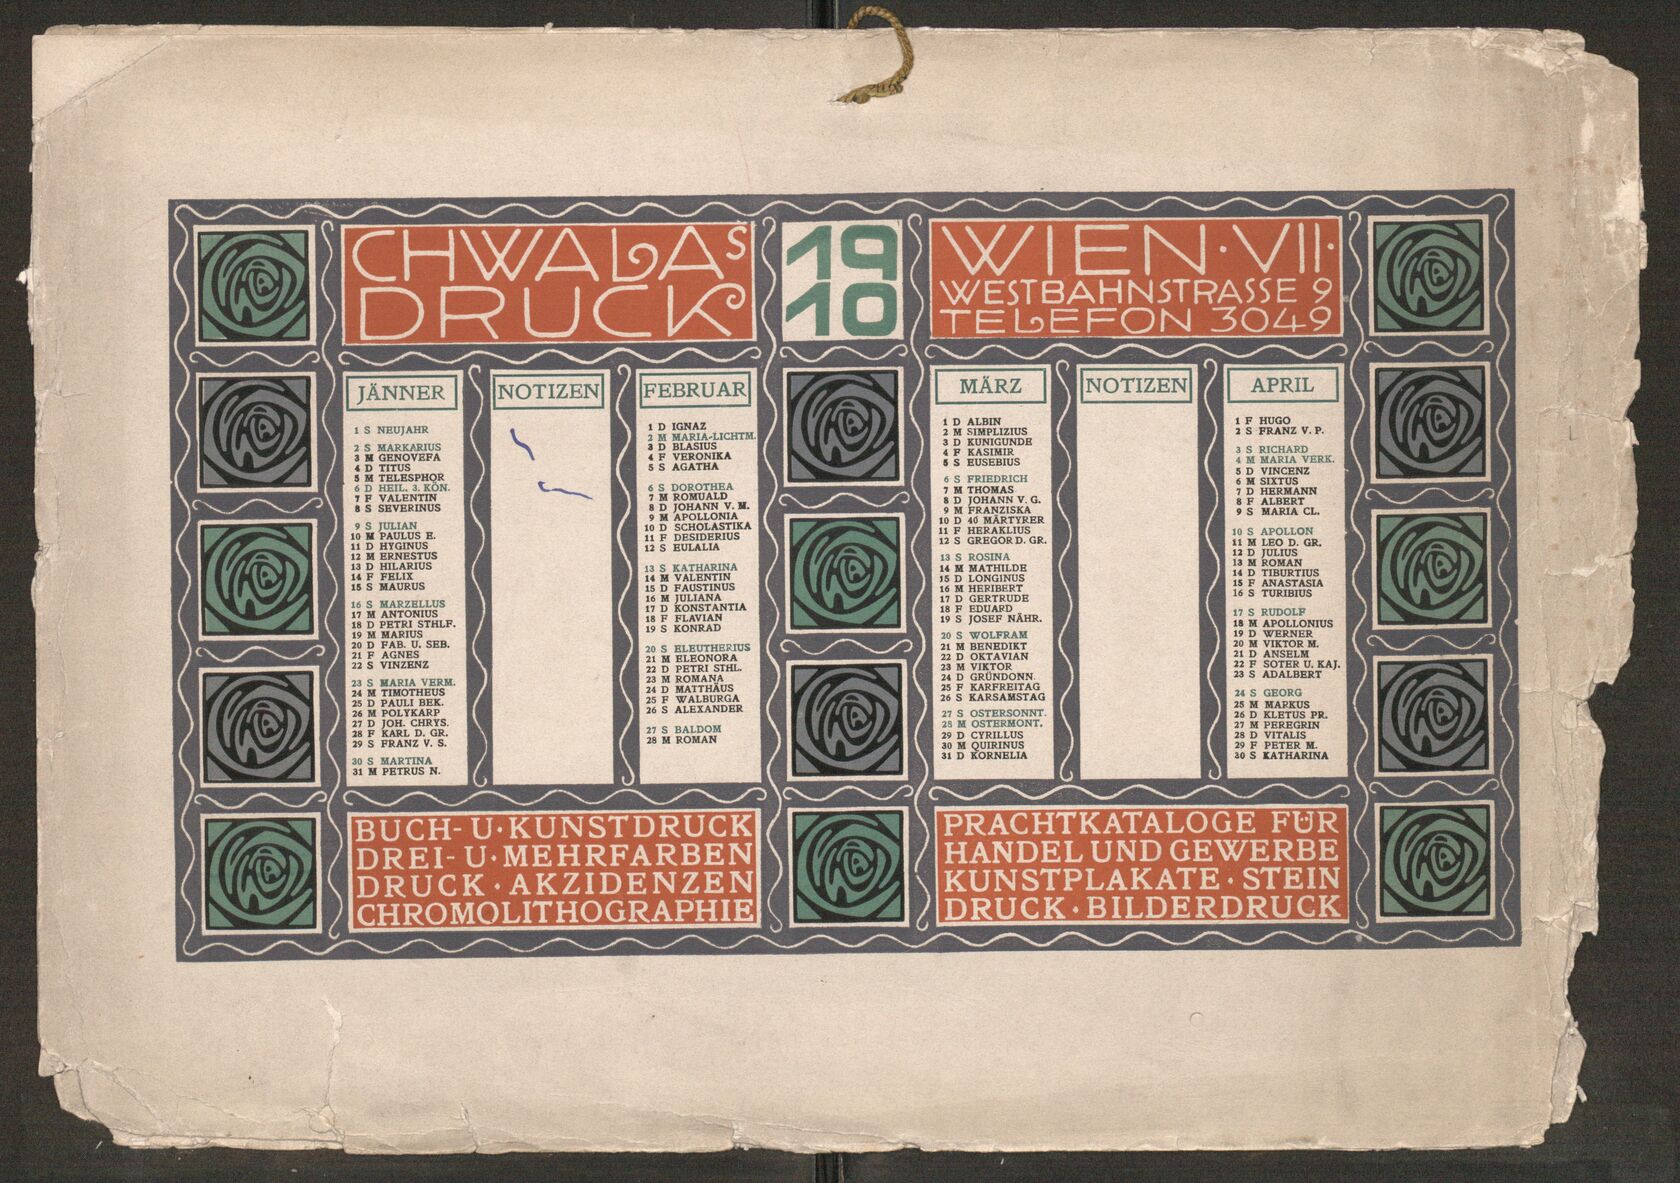 CHWALAS
DRUCK
19
10
WIEN·VII·
WESTBAHNSTRASSE 9
TELEFON 3049
JÄNNER
1 S NEUJAHR
2 S MARKARIUS
3 M GENOVEFA
4 D TITUS
5 M TELESPHOR
6 D HEIL. 3. KÖN.
7 F VALENTIN
8 S SEVERINUS
9 S JULIAN
10 M PAULUS E.
11 D HYGINUS
12 M ERNESTUS
13 D HILARIUS
14 F FELIX
15 S MAURUS
16 S MARZELLUS
17 M ANTONIUS
18 D PETRI STHLF.
19 M MARIUS
20 D FAB. U. SEB.
21 F AGNES
22 S VINZENZ
23 S MARIA VERM.
24 M TIMOTHEUS
25 D PAULI BEK.
26 M POLYKARP
27 D JOH. CHRYS.
28 F KARL D. GR.
29 S FRANZ V. S.
30 S MARTINA
31 M PETRUS N.
NOTIZEN
FEBRUAR
1 D IGNAZ
2 M MARIA-LICHTM.
3 D BLASIUS
4 F VERONIKA
5 S AGATHA
6 S DOROTHEA
7 M ROMUALD
8 D JOHANN V. M.
9 M APOLLONIA
10 D SCHOLASTIKA
11 F DESIDERIUS
12 S EULALIA
13 S KATHARINA
14 M VALENTIN
15 D FAUSTINUS
16 M JULIANA
17 D KONSTANTIA
18 F FLAVIAN
19 S KONRAD
20 S ELEUTHERIUS
21 M ELEONORA
22 D PETRI STHL.
23 M ROMANA
24 D MATTHÄUS
25 F WALBURGA
26 S ALEXANDER
27 S BALDOM
28 M ROMAN
MÄRZ
1 D ALBIN
2 M SIMPLIZIUS
3 D KUNIGUNDE
4 F KASIMIR
5 S EUSEBIUS
6 S FRIEDRICH
7 M THOMAS
8 D JOHANN V. G.
9 M FRANZISKA
10 D 40 MÄRTYRER
11 F HERAKLIUS
12 S GREGOR D. GR.
13 S ROSINA
14 M MATHILDE
15 D LONGINUS
16 M HERIBERT
17 D GERTRUDE
18 F EDUARD
19 S JOSEF NÄHR.
20 S WOLFRAM
21 M BENEDIKT
22 D OKTAVIAN
23 M VIKTOR
24 D GRÜNDONN.
25 F KARFREITAG
26 S KARSAMSTAG
27 S OSTERSONNT.
28 M OSTERMONT.
29 D CYRILLUS
30 M QUIRINUS
31 D KORNELIA
NOTIZEN
APRIL
1 F HUGO
2 S FRANZ V. P.
3 S RICHARD
4 M MARIA VERK.
5 D VINCENZ
6 M SIXTUS
7 D HERMANN
8 F ALBERT
9 S MARIA CL.
10 S APOLLON
11 M LEO D. GR.
12 D JULIUS
13 M ROMAN
14 D TIBURTIUS
15 F ANASTASIA
16 S TURIBIUS
17 S RUDOLF
18 M APOLLONIUS
19 D WERNER
20 M VIKTOR M.
21 D ANSELM
22 F SOTER U. KAJ.
23 S ADALBERT
24 S GEORG
25 M MARKUS
26 D KLETUS PR.
27 M PEREGRIN
28 D VITALIS
29 F PETER M.
30 S KATHARINA
BUCH- U·KUNSTDRUCK
DREI- U·MEHRFARBEN
DRUCK·AKZIDENZEN
CHROMOLITHOGRAPHIE
PRACHTKATALOGE FÜR
HANDEL UND GEWERBE
KUNSTPLAKATE·STEIN
DRUCK·BILDERDRUCK